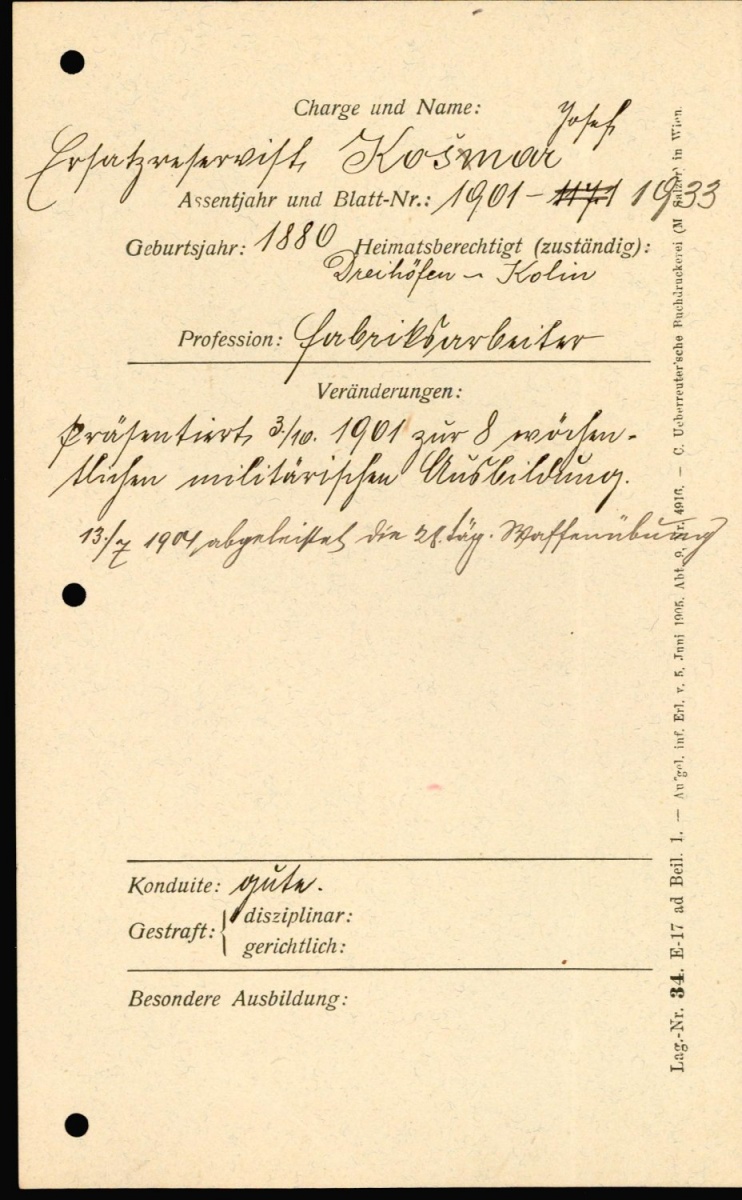 Charge und Name:
Josef
Ersatzreservist Košmar
Assentjahr und Blatt-Nr.: 1901 - 1933
Geburtsjahr: 1880 Heimatsberechtigt (zuständig):
Dreihöfen - Kolin
Profession: Fabriksarbeiter
Veränderungen:
Präsentiert 3./10. 1901 zur 8 wöchen-
tlichen militärischen Ausbildung.
13./7 1901 abgeleistet die 28. täg. Waffenübung
Konduite: gute.
Gestraft: disziplinar:
gerichtlich:
Besondere Ausbildung:
Lag.-Nr. 34. E-17 ad Beil. 1. — Aufgel. inf. Erl. v. 5. Juni 1905, Abt. 9, Nr. 4916. — C. Ueberreuter'sche Buchdruckerei (M. Salzer) in Wien.